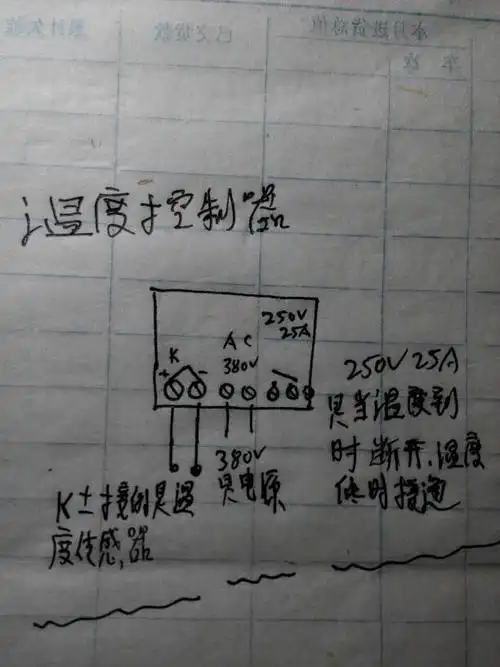 温度控制器
250V
25A
K
AC
380V
+ -
250V 25A
只当温度到
时断开.温度
低时接通
380V
只电源
K±接的是温
度传感.器